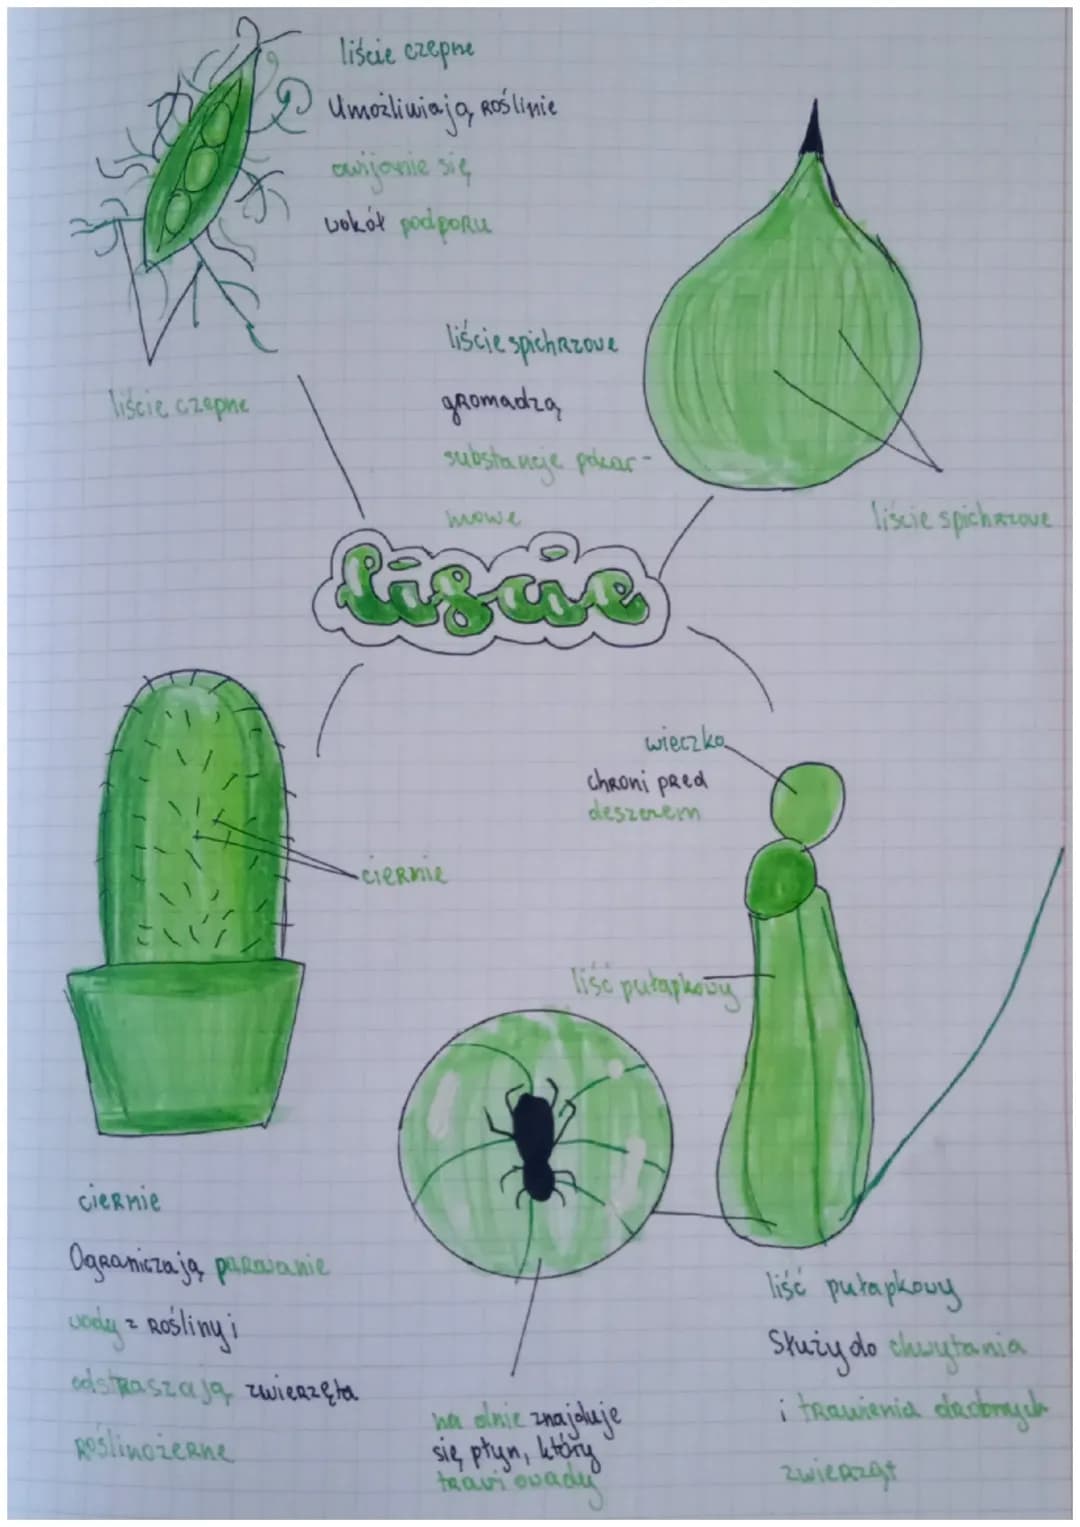 liście czepne
Umożliwiają roślinie
owijanie się
wokół podporu
liście czepne
liście spichrzowe
gromadzą
substancje pokar-
mowe
liście spichrzowe
liście
wieczko
chroni pred
deszczem
ciernie
liść pułapkowy
ciernie
Ograniczają parowanie
wody z rośliny i
odstraszają zwierzęta
roślinożerne
na dnie znajduje
się płyn, który
trawi owady
liść pułapkowy
Służy do chwytania
i trawienia drobnych
zwierząt